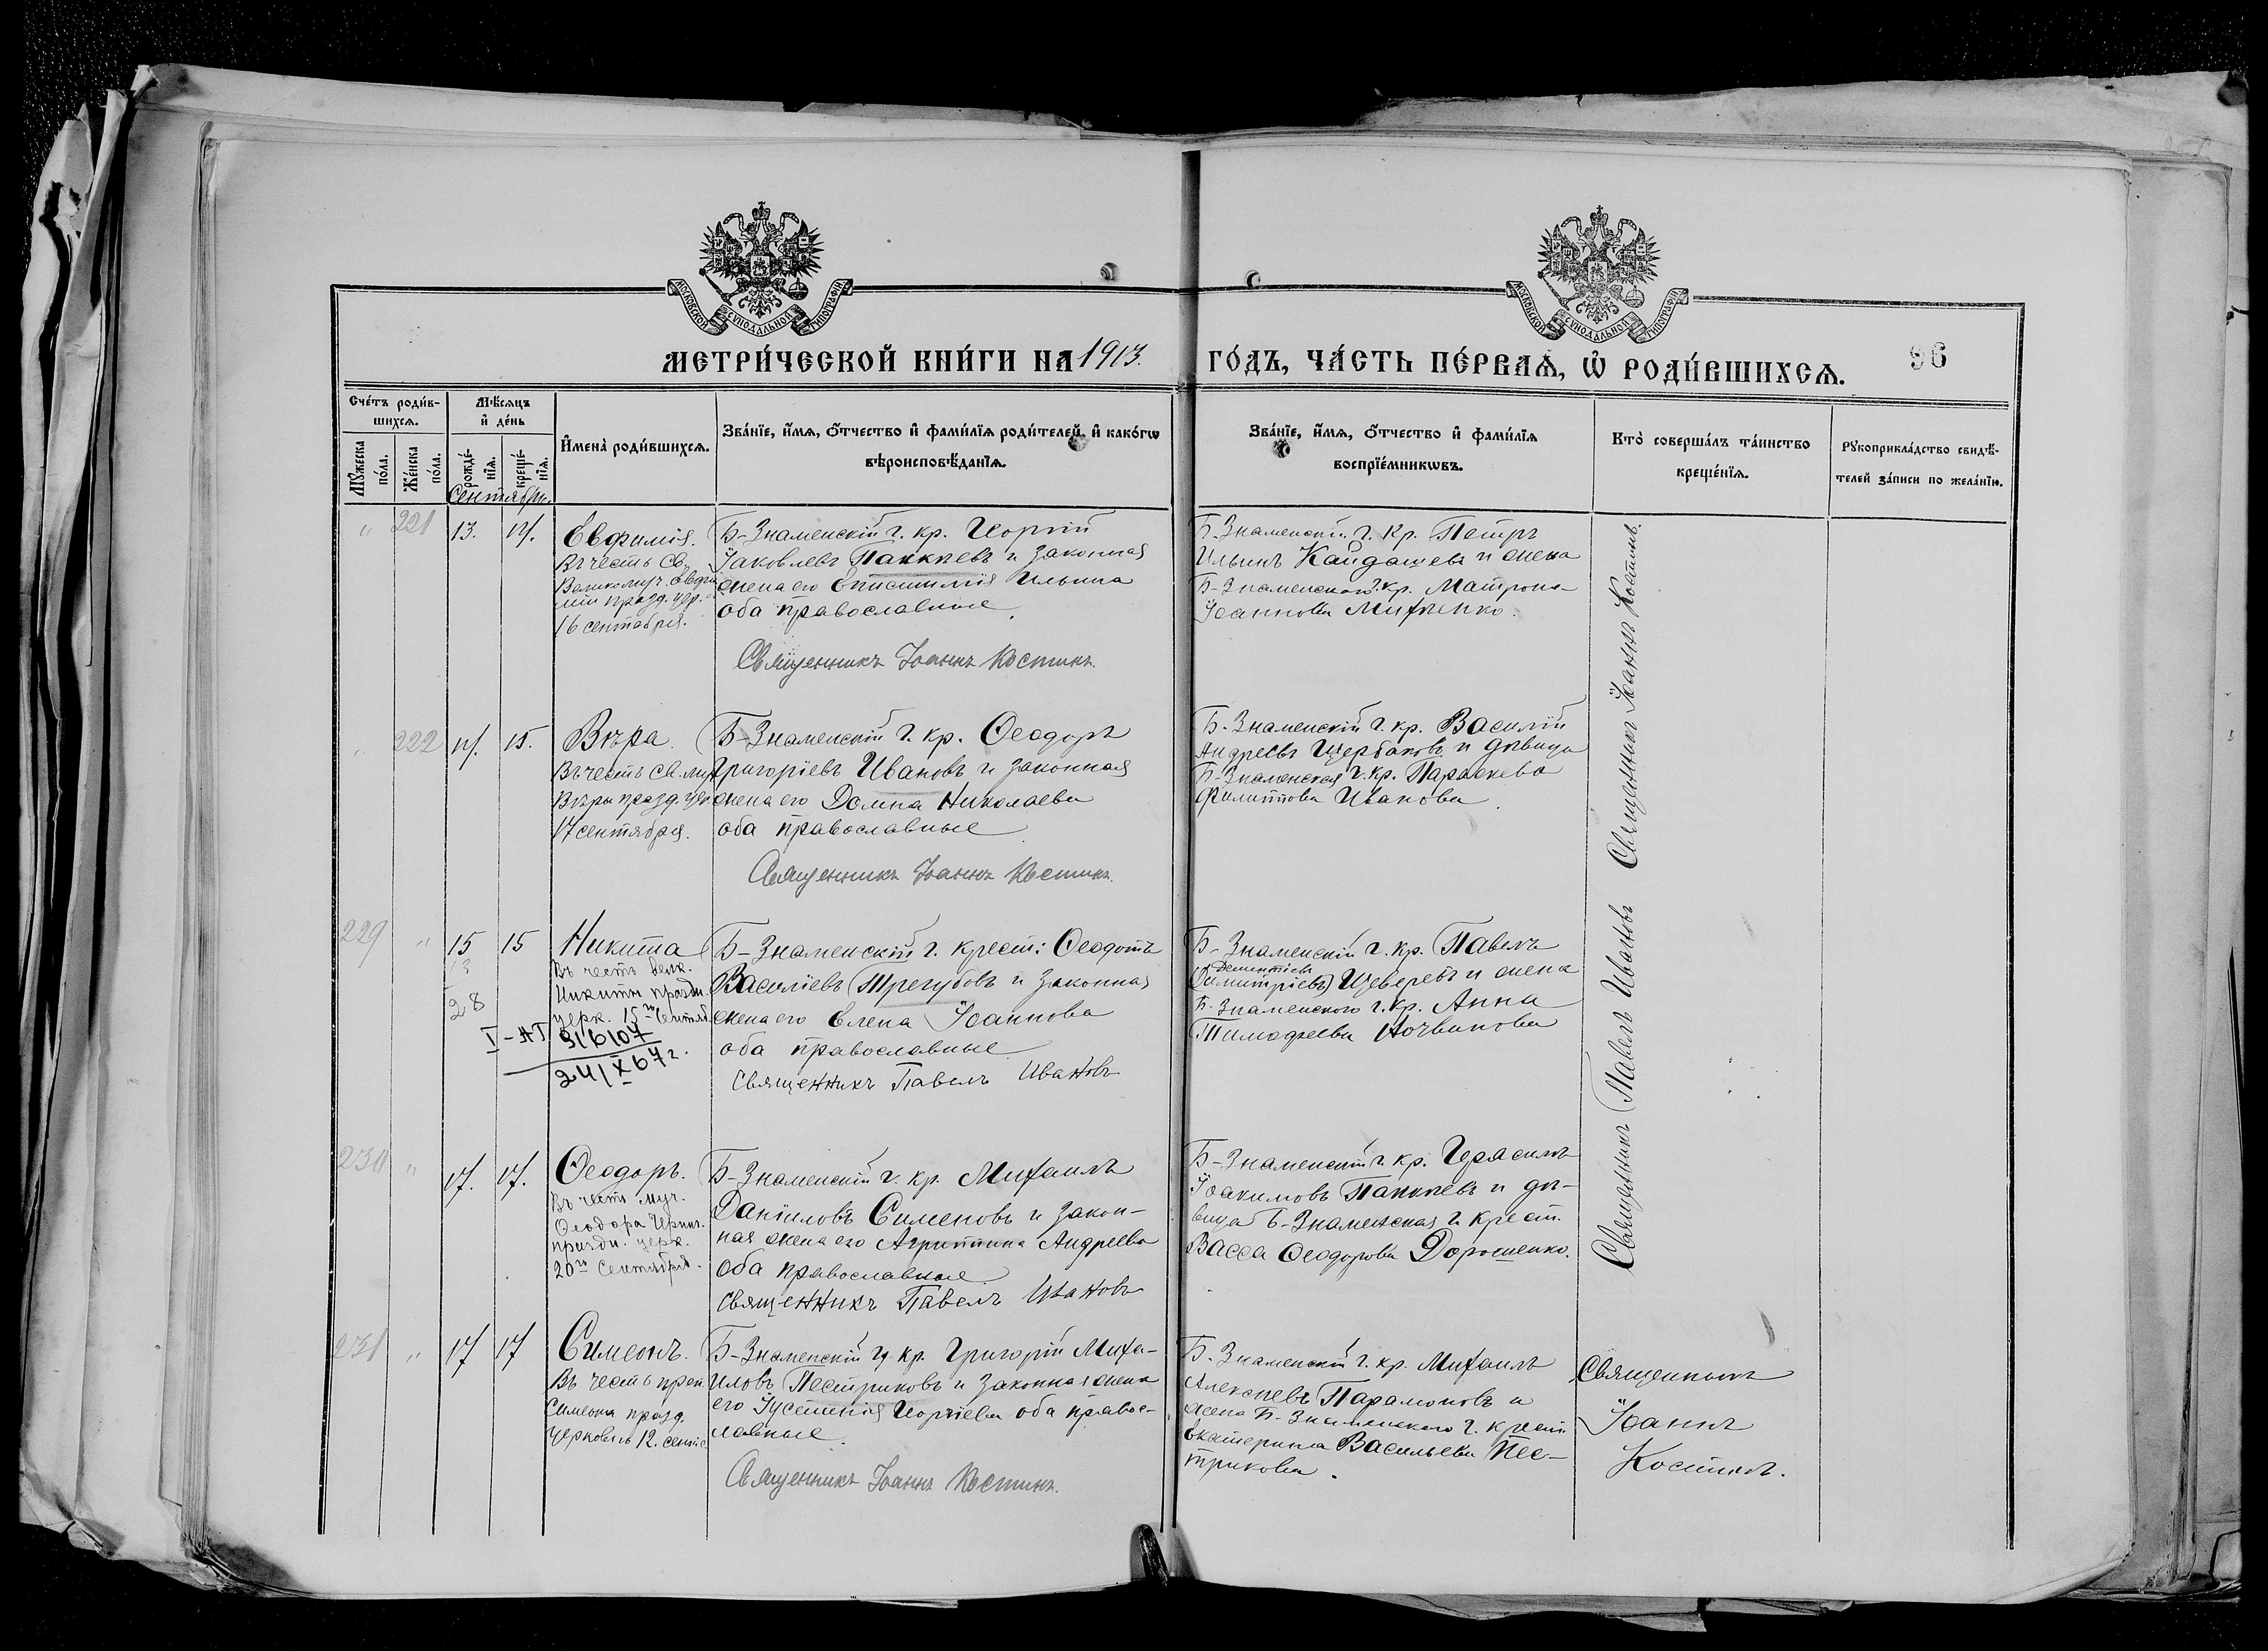 МОСКОВСКОЙ СѴНОДАЛЬНОЙ ТИПОГРАФІИ
МОСКОВСКОЙ СѴНОДАЛЬНОЙ ТИПОГРАФІИ
МЕТРИ́ЧЕСКОЙ КНИ́ГИ НА 1913.
ГО́ДЪ, ЧА́СТЬ ПЕ́РВАѦ, Ѡ҆ РОДИ́ВШИХСѦ.
96
Сче́тъ роди́в-
шихсѧ.
Мѣ́сяцъ
и҆ де́нь
Мꙋ́жеска по́ла.
Же́нска по́ла.
рожде́-
нїѧ.
креще́-
нїѧ.
И҆мена̀ роди́вшихсѧ.
Зва́нїе, и҆́мѧ, ѻ҆́тчество и҆ фами́лїѧ роди́телей, и҆ како́гѡ
вѣроисповѣ́данїѧ.
Зва́нїе, и҆́мѧ, ѻ҆́тчество и҆ фами́лїѧ
воспрїе́мникѡвъ.
Кто̀ соверша́лъ та́инство
креще́нїѧ.
Рꙋкоприкла́дство свидѣ́-
телей за́писи по жела́нїю.
Сентябрь.
" 221 13. 14.
Евфимія.
Въ честь Св.
Великомуч. Евфи
міи празд. цер.
16 сентября.
Б-Знаменскій г. кр. Георгій
Іаковлевъ Панкпевъ и законная
жена его Епистимія Ильина
оба православные
Священникъ Іоаннъ Костинъ.
Б-Знаменскій г. кр. Петръ
Ильинъ Кайдашевъ и жена
Б-Знаменского г. кр. Матрона
Іоаннова Михненко.
" 222 14. 15.
Вѣра.
Въ честь св. муч
Вѣры празд. цер
17 сентября.
Б-Знаменскій г. кр. Ѳеодоръ
Григоріевъ Ивановъ и законная
жена его Домна Николаева
оба православные
Священникъ Іоаннъ Костинъ.
Б-Знаменскій г. кр. Василій
Андреевъ Щербаковъ и дѣвица
Б-Знаменская г. кр. Параскева
Филиппова Иванова.
Священникъ Іоаннъ Костинъ.
229 " 15 15
28
Никита
Въ честь велк.
Никиты праздн.
церк. 15го Сентяб.
I-АГ 316107
24/X 67 г.
Б-Знаменскій г. крест: Ѳеодотъ
Василіевъ Трегубовъ и законная
жена его Елена Іоаннова
оба православные
Священникъ Павелъ Ивановъ
Б-Знаменскій г. кр. Павелъ
Дементіев
(Димитріевъ) Щеверевъ и жена
Б-Знаменского г. кр. Анна
Тимофеева Ночвинова
230 " 17. 17.
Ѳеодоръ.
Въ честь муч.
Ѳеодора Черниг.
праздн. церк.
20го Сентября.
Б-Знаменскій г. кр. Михаилъ
Даніиловъ Сименовъ и закон-
ная жена его Агриппина Андреева
оба православные
Священникъ Павелъ Ивановъ
Б-Знаменскій г. кр. Герасимъ
Іоакимовъ Панкпевъ и дѣ-
вица Б-Знаменская г. крест.
Васса Ѳеодорова Дорошенко.
Священникъ Павелъ Ивановъ
231 " 17 17
Симеонъ.
Въ честь преп.
Симеона празд.
Церковью 12. сентяб
Б-Знаменскій г. кр. Григорій Миха-
иловъ Пестриковъ и законная жена
его Іустинія Георгіева оба правос-
лавные.
Священникъ Іоаннъ Костинъ.
Б-Знаменскій г. кр. Михаилъ
Алексѣевъ Парамоновъ и
жена Б-Знаменского г. крест
Екатерина Васильева Пес-
трикова.
Священникъ
Іоаннъ
Костинъ.